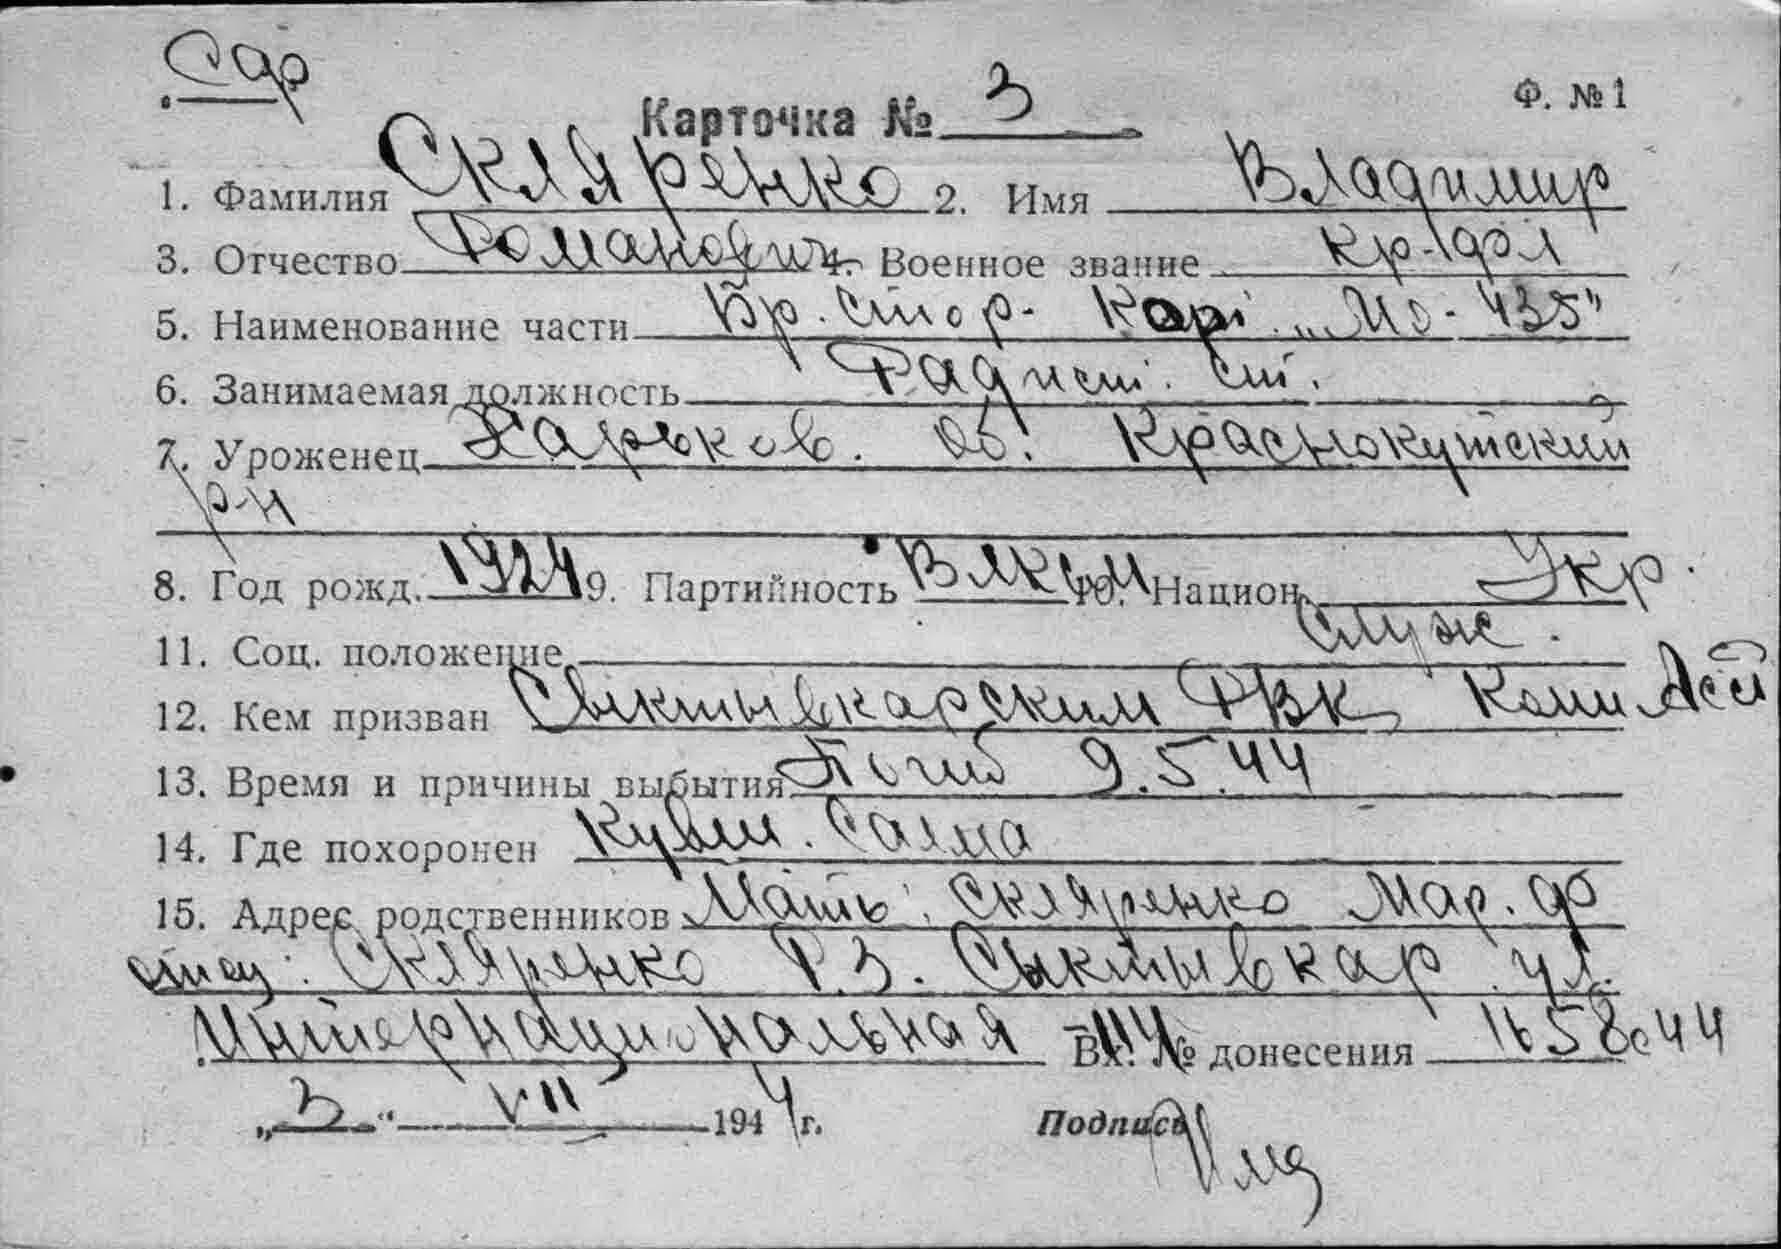 Сдр
Карточка № 3 Ф. № 1
1. Фамилия Скляренко 2. Имя Владимир
3. Отчество Романович 4. Военное звание кр-фл
5. Наименование части Бр. стор. кор. „МО-435"
6. Занимаемая должность Радист. ст.
7. Уроженец Харьков. об. Краснокутский
р-н
8. Год рожд. 1924 9. Партийность ВЛКСМ 10. Национ. Укр.
11. Соц. положение служ.
12. Кем призван Сыктывкарским РВК Коми АССР
13. Время и причины выбытия Погиб 9.5.44
14. Где похоронен Кувш. Салма
15. Адрес родственников Мать: Скляренко Мар. Ф
отец: Скляренко Р.З. Сыктывкар ул.
Интернациональная 114 Вх. № донесения 1658с44
„3" VII 1944 г. Подпись